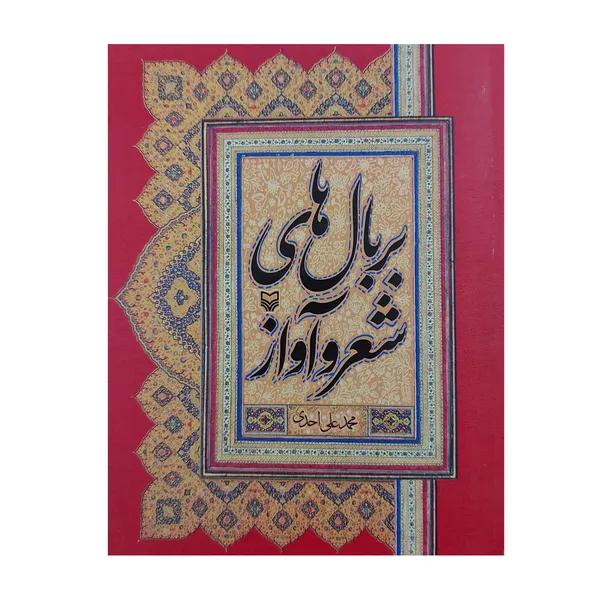 بر بال های
شعر و آواز
محمد علی احدی